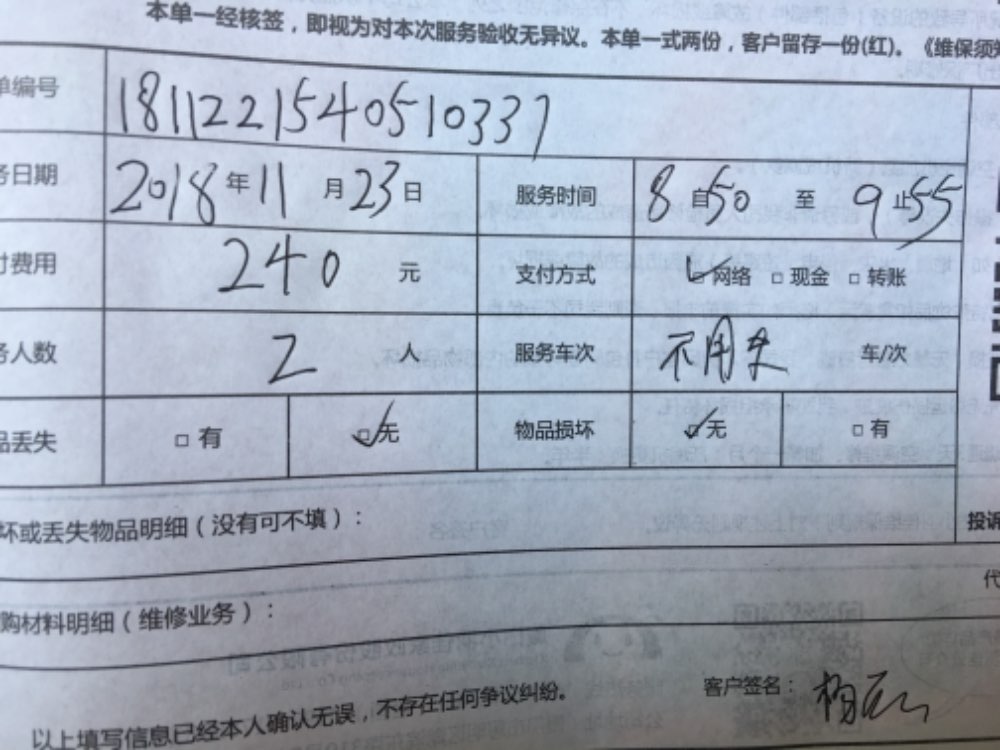 本单一经核签，即视为对本次服务验收无异议。本单一式两份，客户留存一份(红)。《维保须
单编号 181122154051033
务日期 2018年11月23日 服务时间 8自50至9止55
付费用 240元 支付方式 网络 □现金 □转账
务人数 2人 服务车次 不用车 车/次
品丢失 □有 无 物品损坏 无 □有
坏或丢失物品明细（没有可不填）：
投诉
代
购材料明细（维修业务）：
以上填写信息已经本人确认无误，不存在任何争议纠纷。
客户签名：